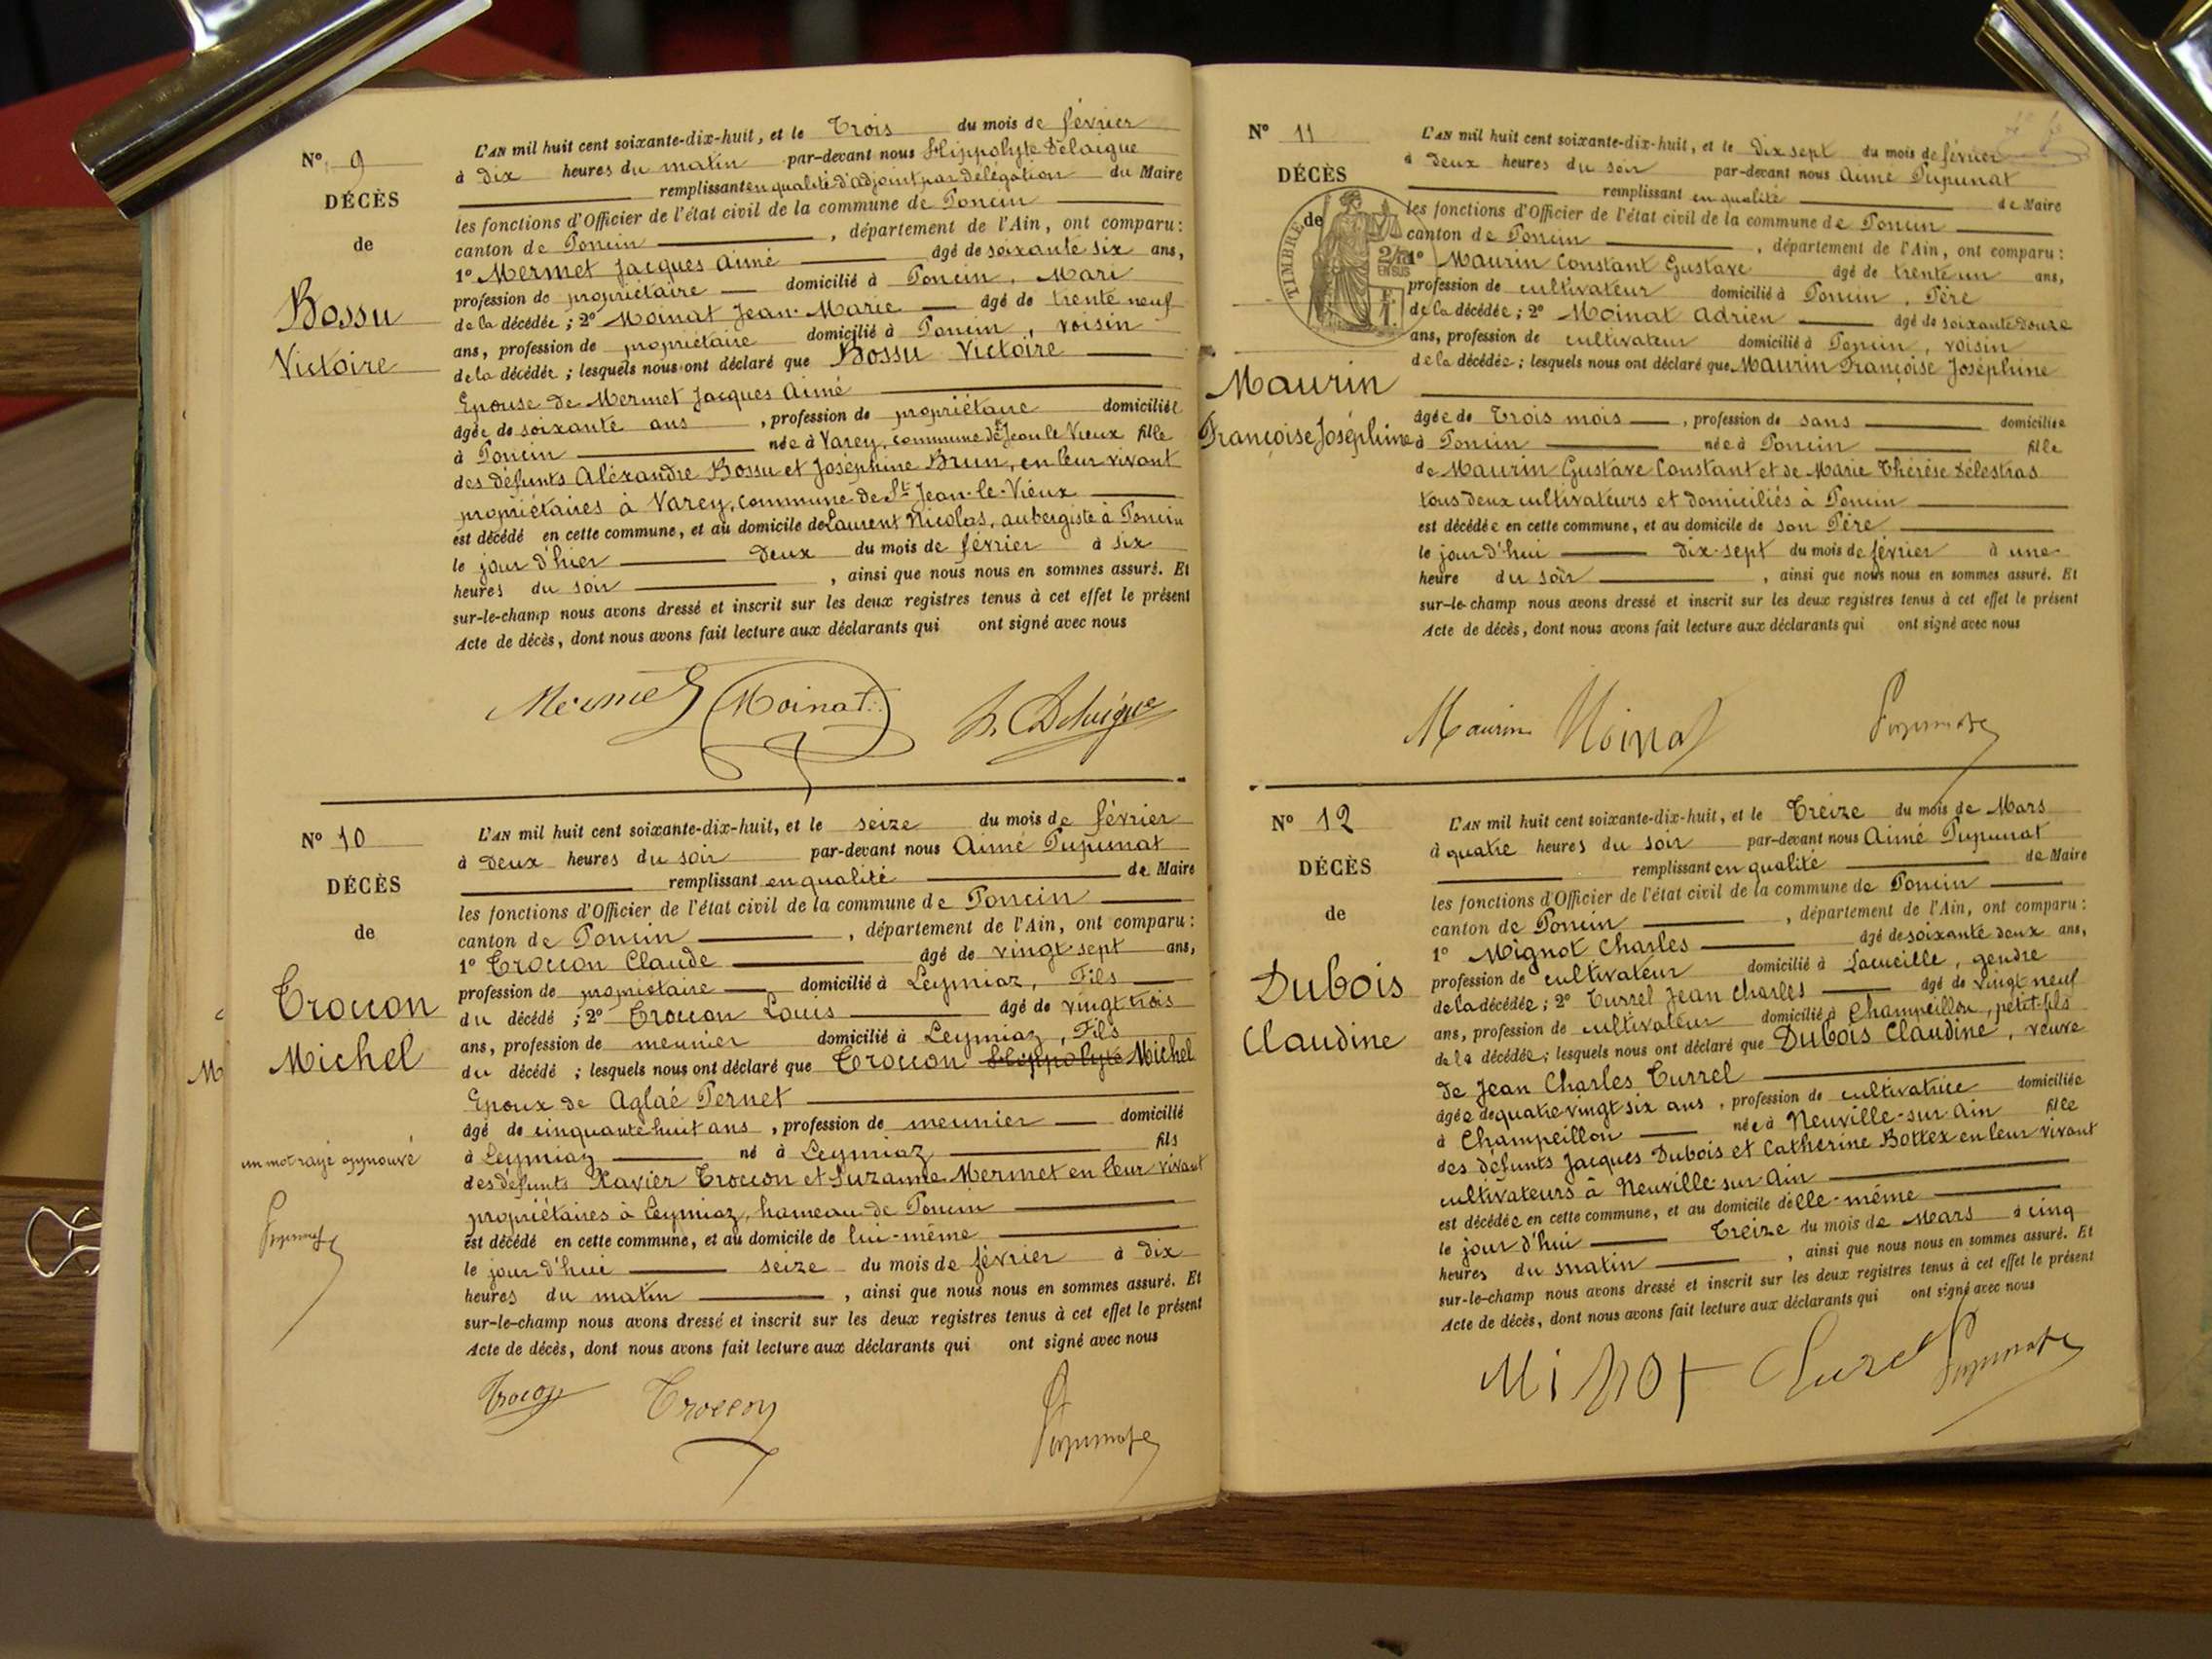 N° 9
DÉCÈS
de
Bossu
Victoire
L'AN mil huit cent soixante-dix-huit, et le Trois du mois de février
à dix heures du matin par-devant nous Hippolyte Delaigue
remplissant en qualité d'adjoint par délégation du Maire
les fonctions d'Officier de l'état civil de la commune de Poncin
canton de Poncin , département de l'Ain, ont comparu :
1° Mermet Jacques Aimé âgé de soixante six ans,
profession de propriétaire domicilié à Poncin, Mari
de la décédée ; 2° Moinat Jean-Marie âgé de trente neuf
ans, profession de propriétaire domicilié à Poncin, voisin
de la décédée ; lesquels nous ont déclaré que Bossu Victoire
Epouse de Mermet Jacques Aimé
âgée de soixante ans , profession de propriétaire domiciliée
à Poncin née à Varey, commune de St Jean le Vieux fille
des défunts Aléxandre Bossu et Joséphine Brun, en leur vivant
propriétaires à Varey, commune de St Jean-le-Vieux
est décédé en cette commune, et au domicile de Laurent Nicolas, aubergiste à Poncin
le jour d'hier deux du mois de février à six
heures du soir , ainsi que nous nous en sommes assuré. Et
sur-le-champ nous avons dressé et inscrit sur les deux registres tenus à cet effet le présent
Acte de décès, dont nous avons fait lecture aux déclarants qui ont signé avec nous
Mermet Moinat H. Delaigue
N° 10
DÉCÈS
de
Troccon
Michel
un mot rayé approuvé
Pupunat
L'AN mil huit cent soixante-dix-huit, et le seize du mois de février
à deux heures du soir par-devant nous Aimé Pupunat
remplissant en qualité de Maire
les fonctions d'Officier de l'état civil de la commune de Poncin
canton de Poncin , département de l'Ain, ont comparu :
1° Troccon Claude âgé de vingt-sept ans,
profession de propriétaire domicilié à Leymiaz, Fils
du décédé ; 2° Troccon Louis âgé de vingt trois
ans, profession de meunier domicilié à Leymiaz, Fils
du décédé ; lesquels nous ont déclaré que Troccon Hippolyte Michel
Epoux de Aglaé Pernet
âgé de cinquante huit ans , profession de meunier domicilié
à Leymiaz né à Leymiaz fils
des défunts Xavier Troccon et Suzanne Mermet en leur vivant
propriétaires à Leymiaz, hameau de Poncin
est décédé en cette commune, et au domicile de lui-même
le jour d'hui seize du mois de février à dix
heures du matin , ainsi que nous nous en sommes assuré. Et
sur-le-champ nous avons dressé et inscrit sur les deux registres tenus à cet effet le présent
Acte de décès, dont nous avons fait lecture aux déclarants qui ont signé avec nous
Trocon Troccon Pupunat
N° 11
DÉCÈS
de
TIMBRE
EN SUS
Maurin
Françoise Joséphine
L'AN mil huit cent soixante-dix-huit, et le dix sept du mois de février
à deux heures du soir par-devant nous Aimé Pupunat
remplissant en qualité de Maire
les fonctions d'Officier de l'état civil de la commune de Poncin
canton de Poncin , département de l'Ain, ont comparu :
1° Maurin Constant Gustave âgé de trente un ans,
profession de cultivateur domicilié à Poncin, Père
de la décédée ; 2° Moinat Adrien âgé de soixante douze
ans, profession de cultivateur domicilié à Poncin, voisin
de la décédée ; lesquels nous ont déclaré que Maurin Françoise Joséphine
âgée de Trois mois , profession de sans domiciliée
à Poncin née à Poncin fille
de Maurin Gustave Constant et de Marie Thérèse Délestras
tous deux cultivateurs et domiciliés à Poncin
est décédée en cette commune, et au domicile de son Père
le jour d'hui dix-sept du mois de février à une
heure du soir , ainsi que nous nous en sommes assuré. Et
sur-le-champ nous avons dressé et inscrit sur les deux registres tenus à cet effet le présent
Acte de décès, dont nous avons fait lecture aux déclarants qui ont signé avec nous
Maurin Moinat Pupunat
N° 12
DÉCÈS
de
Dubois
Claudine
L'AN mil huit cent soixante-dix-huit, et le Treize du mois de Mars
à quatre heures du soir par-devant nous Aimé Pupunat
remplissant en qualité de Maire
les fonctions d'Officier de l'état civil de la commune de Poncin
canton de Poncin , département de l'Ain, ont comparu :
1° Mignot Charles âgé de soixante deux ans,
profession de cultivateur domicilié à Lacueille, gendre
de la décédée ; 2° Turrel Jean Charles âgé de vingt neuf
ans, profession de cultivateur domicilié à Champeillon, petit-fils
de la décédée ; lesquels nous ont déclaré que Dubois Claudine, veuve
de Jean Charles Turrel
âgée de quatre vingt six ans , profession de cultivatrice domiciliée
à Champeillon née à Neuville-sur-Ain fille
des défunts Jacques Dubois et Catherine Bottex en leur vivant
cultivateurs à Neuville-sur-Ain
est décédée en cette commune, et au domicile d'elle-même
le jour d'hui Treize du mois de Mars à cinq
heures du matin , ainsi que nous nous en sommes assuré. Et
sur-le-champ nous avons dressé et inscrit sur les deux registres tenus à cet effet le présent
Acte de décès, dont nous avons fait lecture aux déclarants qui ont signé avec nous
Turel Pupunat